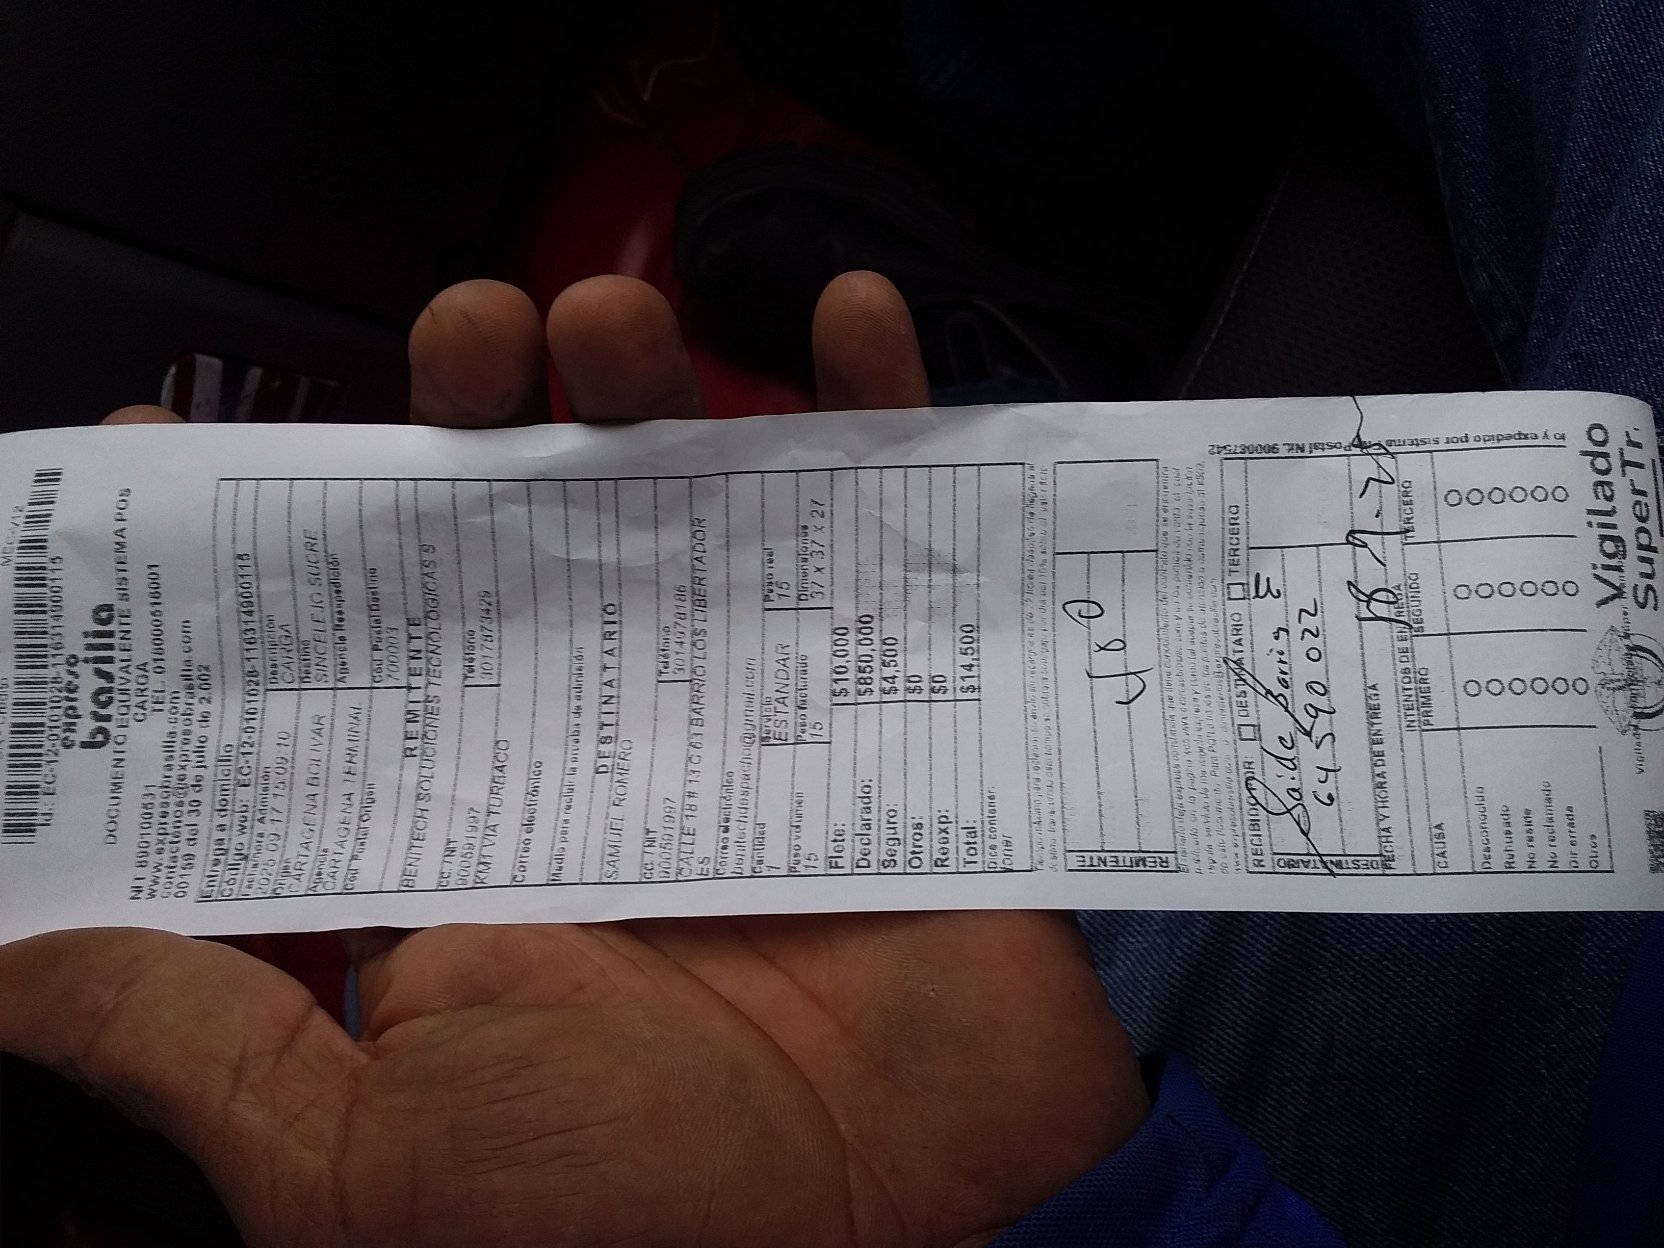 Id.: EC-12-0101028-116314900115
expreso
brasilia
DOCUMENTO EQUIVALENTE SISTEMA POS
CARGA
NIT 890100531 TEL. 018000518001
www.expresobrasilia.com
contactenos@expresobrasilia.com
00159 del 30 de julio de 2.002
Entrega a domicilio
Código web: EC-12-0101028-116314900115
Fecha/hora Admisión Descripción
2025 09 17 15:09:10 CARGA
Origen Destino
CARTAGENA BOLIVAR SINCELEJO SUCRE
Agencia Agencia Reexpedición
CARTAGENA TERMINAL
Cód. Postal Origen Cód. Postal Destino
700003
REMITENTE
BENITECH SOLUCIONES TECNOLOGICAS S
CC/NIT Teléfono
900591997 3017873429
KM1 VIA TURBACO
Correo electrónico
Medio para recibir la prueba de admisión
DESTINATARIO
SAMUEL ROMERO
CC. / NIT Teléfono
900591997 3014978186
CALLE 18 # 13 C 63 BARRIO LOS LIBERTADOR
ES
Correo electrónico
benitechdespacho@gmail.com
Cantidad Servicio Peso real
1 ESTANDAR 15
Peso volumen Peso facturado Dimensiones
15 15 37 X 37 X 27
Flete: $10,000
Declarado: $850,000
Seguro: $4,500
Otros: $0
Reexp: $0
Total: $14,500
Dice contener:
toner
REMITENTE
480
REMITENTE
RECIBIDO POR: DESTINATARIO TERCERO
Saide Barrios E
64590022
FECHA Y HORA DE ENTREGA
INTENTOS DE ENTREGA
CAUSA PRIMERO SEGUNDO TERCERO
Desconocido
Rehusado
No reside
No reclamado
Dir errada
Otros
Vigilado
SuperTr